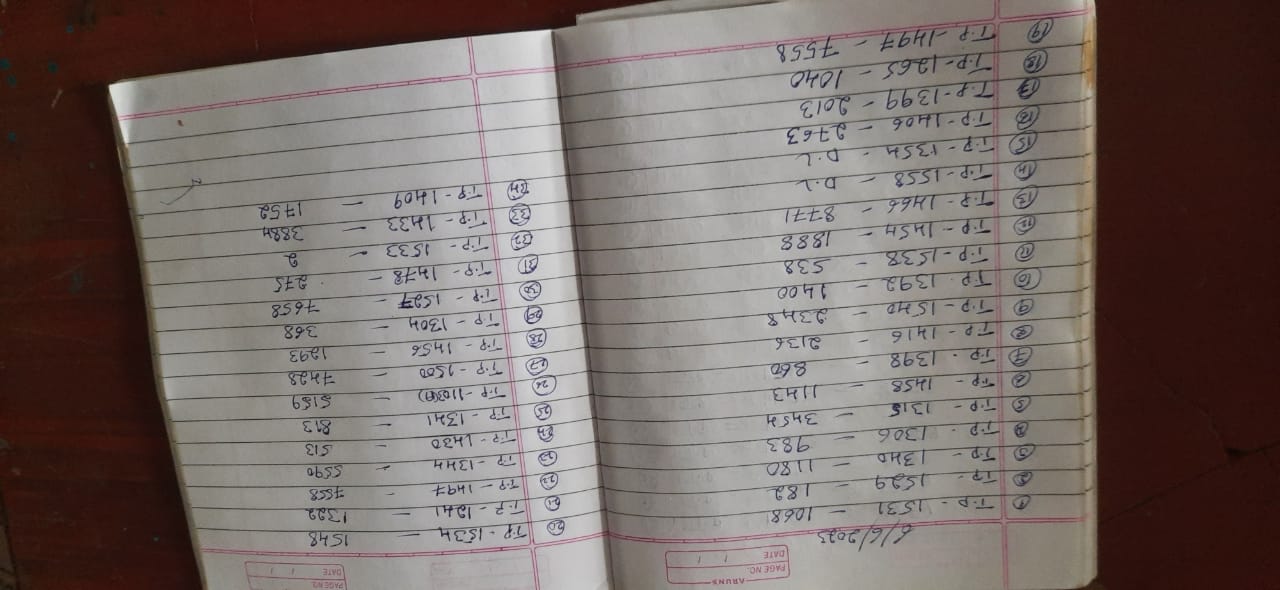 ARUNS
PAGE NO.
DATE / /
/6/2023
① T.P - 1531 - 1068
② T.P - 1529 - 182
③ T.P - 1340 - 1180
④ T.P - 1306 - 983
⑤ T.P - 1315 - 3454
⑥ T.P - 1458 - 1143
⑦ T.P - 1398 - 860
⑧ T.P - 1416 - 2136
⑨ T.P - 1540 - 2348
⑩ T.P - 1392 - 1400
⑪ T.P - 1538 - 538
⑫ T.P - 1454 - 1888
⑬ T.P - 1466 - 8771
⑭ T.P - 1558 - D.L
⑮ T.P - 1354 - D.L
⑯ T.P - 1406 - 2763
⑰ T.P - 1399 - 2013
⑱ T.P - 1265 - 1040
⑲ T.P - 1497 - 7558
PAGE NO.
DATE / /
⑳ T.P - 1534 - 1548
㉑ T.P - 1241 - 1322
㉒ T.P - 1497 - 7558
㉓ T.P - 1344 - 5590
㉔ T.P - 1430 - 513
㉕ T.P - 1341 - 813
㉖ T.P - 1103(A) - 5159
㉗ T.P - 1500 - 7428
㉘ T.P - 1456 - 1293
㉙ T.P - 1304 - 368
㉚ T.P - 1527 - 7658
㉛ T.P - 1478 - 275
㉜ T.P - 1533 - 2
㉝ T.P - 1433 - 3884
㉞ T.P - 1409 - 1752